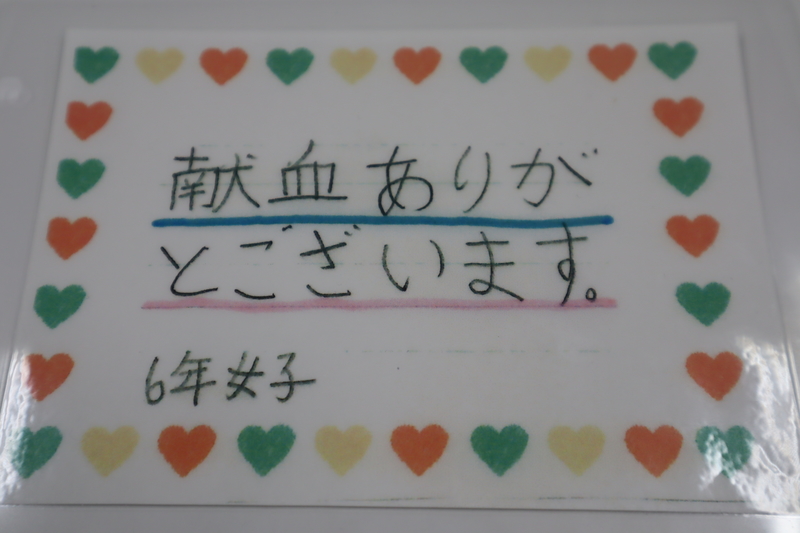 献血ありが
とございます。
6年女子